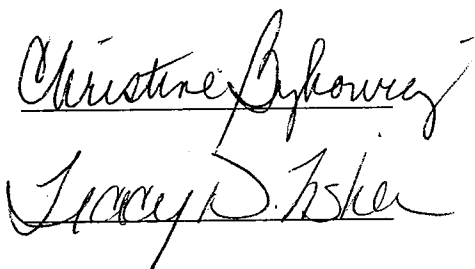 Christine Bykowicz
Tracey D. Fisher